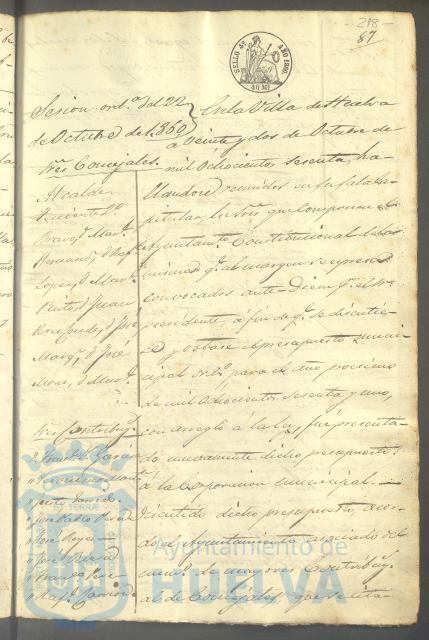 218
87
SELLO 4º AÑO 1860.
40 Ms
Sesion ord.ª del 22
de Octubre de 1860
Sres Concejales.
Alcalde
Teniente 1º
Bravo, d Man.l
Hernand.z, d Raf.l
Lopez, d Man.l
Pinto, d Juan
d José
Marq.z, d José
d Man.l
Sres Contribuy.s
José Pablo
José Reyes
José
En la Villa de Huelva
a veinte y dos de Octubre de
mil ochocientos sesenta, ha-
llandose reunidos en su sala ca-
pitular, los Sres que componen el
Ayuntamto Constitucional de la
misma q.e al margen se espresan
convocados ante-diem p.r el Sr
presidente, á fin de q.e se discutie-
se y votase el presupuesto muni-
cipal ord.º para el año procsimo
de mil ochocientos sesenta y uno,
con arreglo á la ley, fué presenta-
do nuevamente dicho presupuesto
á la Corporacion municipal.
Discutido dicho presupuesto, acor-
dó el Ayuntamiento asociado del
num.º de mayores Contribuy.s
al de Concejales
Ayuntamiento de
HUELVA